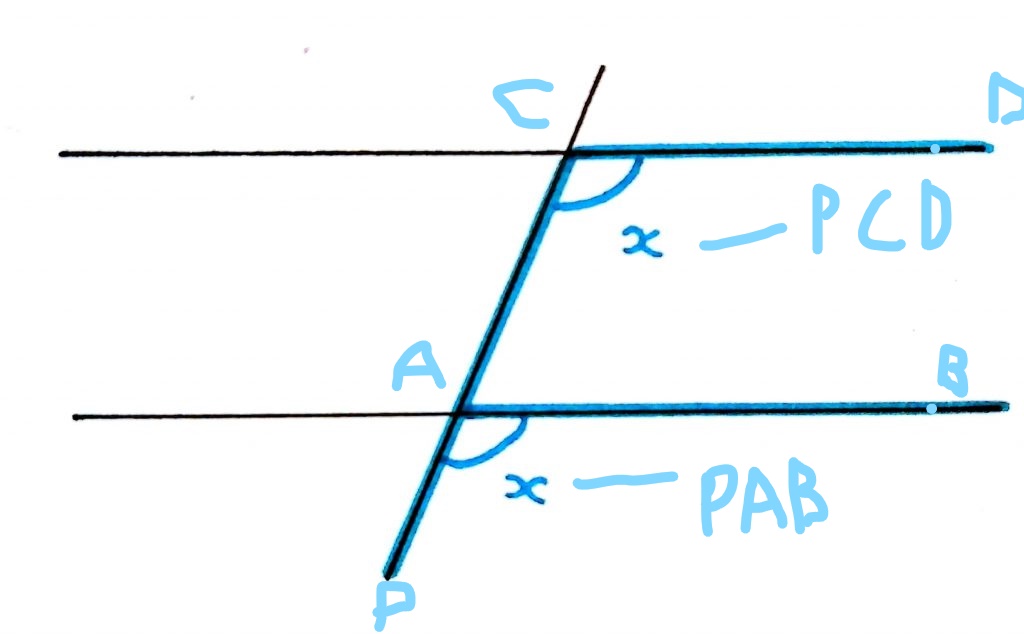 C D
x — PCD
A B
x — PAB
P